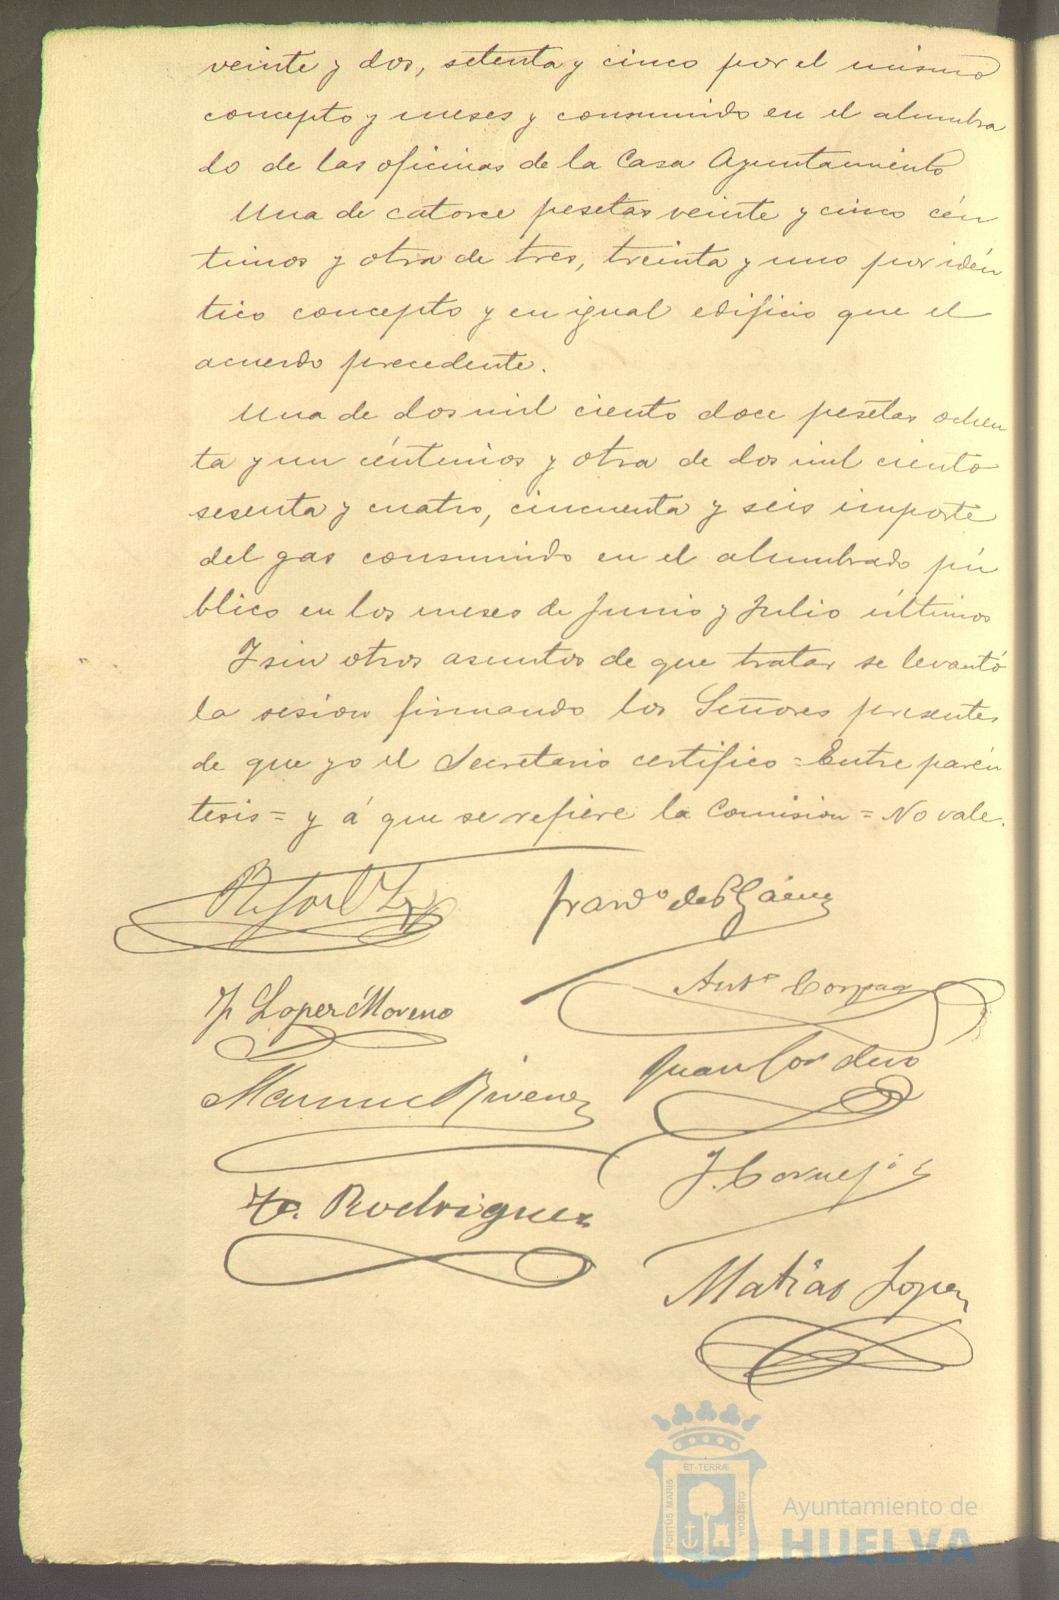 veinte y dos, setenta y cinco por el mismo
concepto y meses y consumido en el alumbra
do de las oficinas de la Casa Ayuntamiento
Una de catorce pesetas veinte y cinco cén
timos y otra de tres, treinta y uno por idén
tico concepto y en igual edificio que el
acuerdo precedente.
Una de dos mil ciento doce pesetas ochen
ta y un céntimos y otra de dos mil ciento
sesenta y cuatro, cincuenta y seis importe
del gas consumido en el alumbrado pú
blico en los meses de Junio y Julio últimos
Y sin otros asuntos de que tratar se levantó
la sesion firmando los Señores presentes
de que yo el Secretario certifico = Entre parén
tesis = y á que se refiere la Comision = No vale.
J Lopez Moreno
Juan Cordero
J. Cornejo
Rodriguez
Matias Lopez
PORTUS MARIS
ET TERRÆ
CUSTODIA
Ayuntamiento de
HUELVA